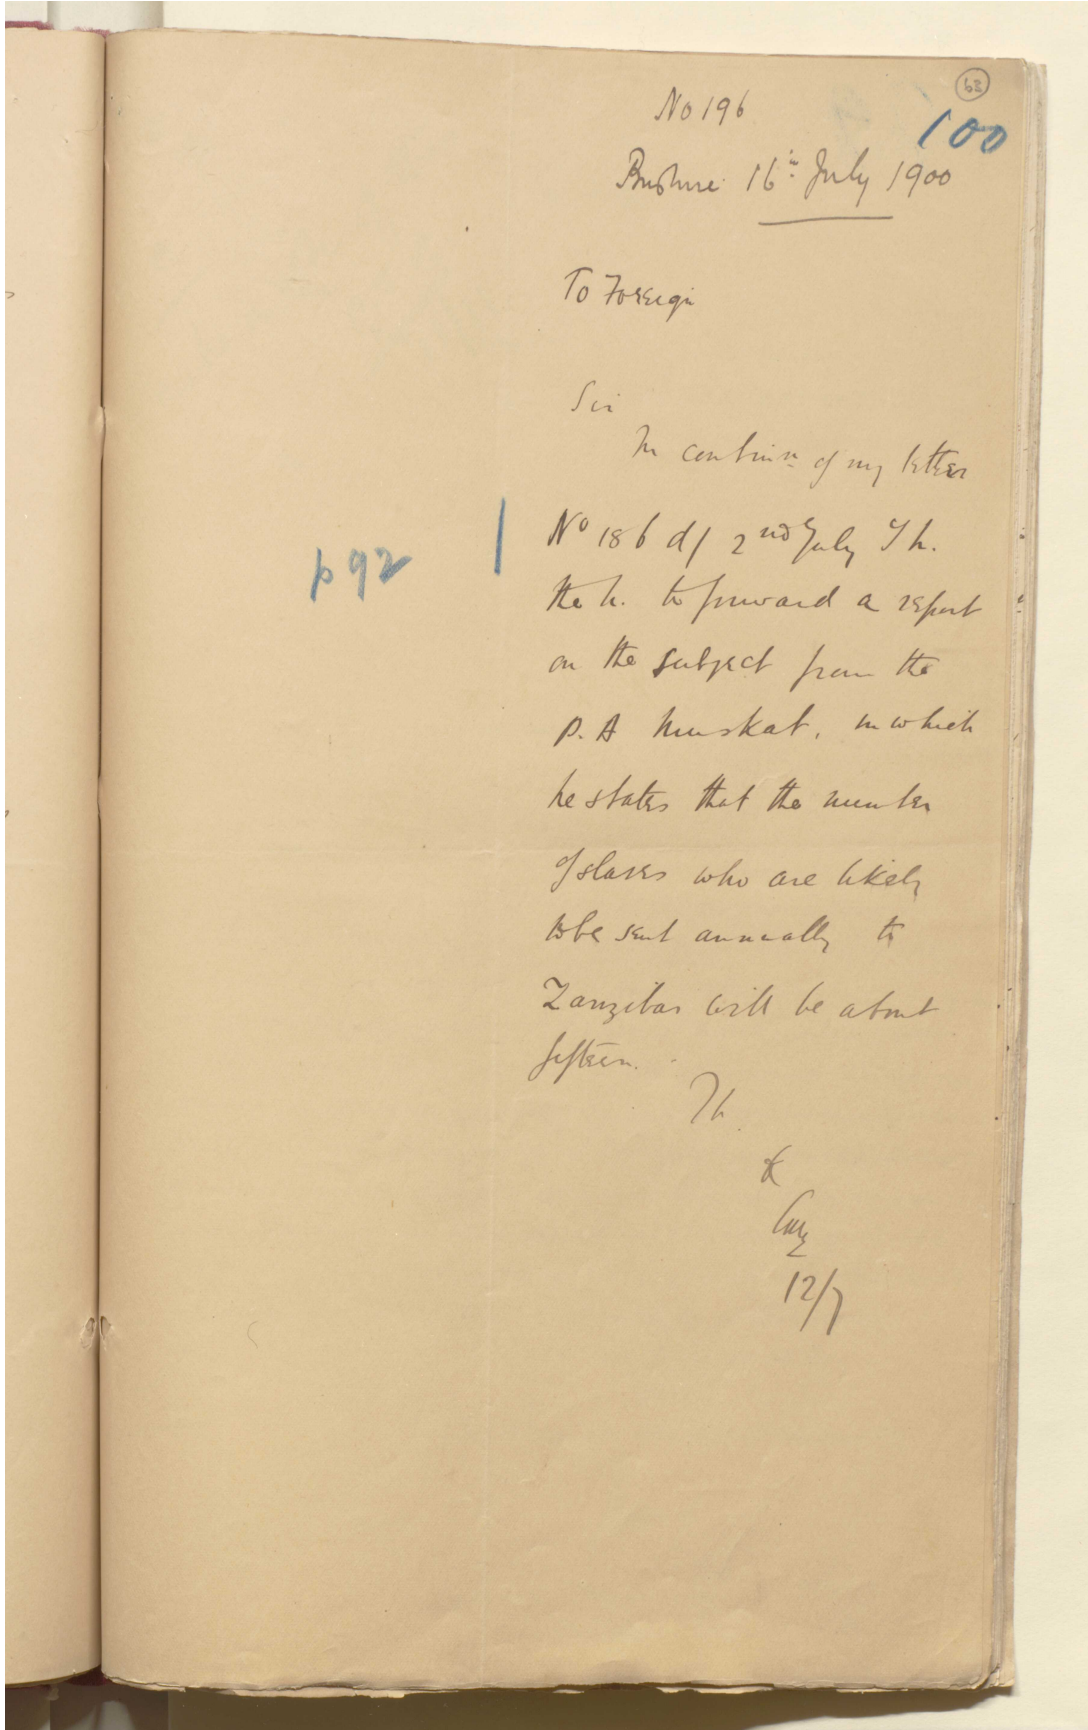 63
100
No 196
Bushire 16th July 1900
To Foreign
Sir
In continn of my letter
p 92
No 186 d/ 2nd July I h.
the h. to forward a report
on the subject from the
P. A Muskat, in which
he states that the number
of slaves who are likely
to be sent annually to
Zanzibar will be about
fifteen.
I h
&
12/7